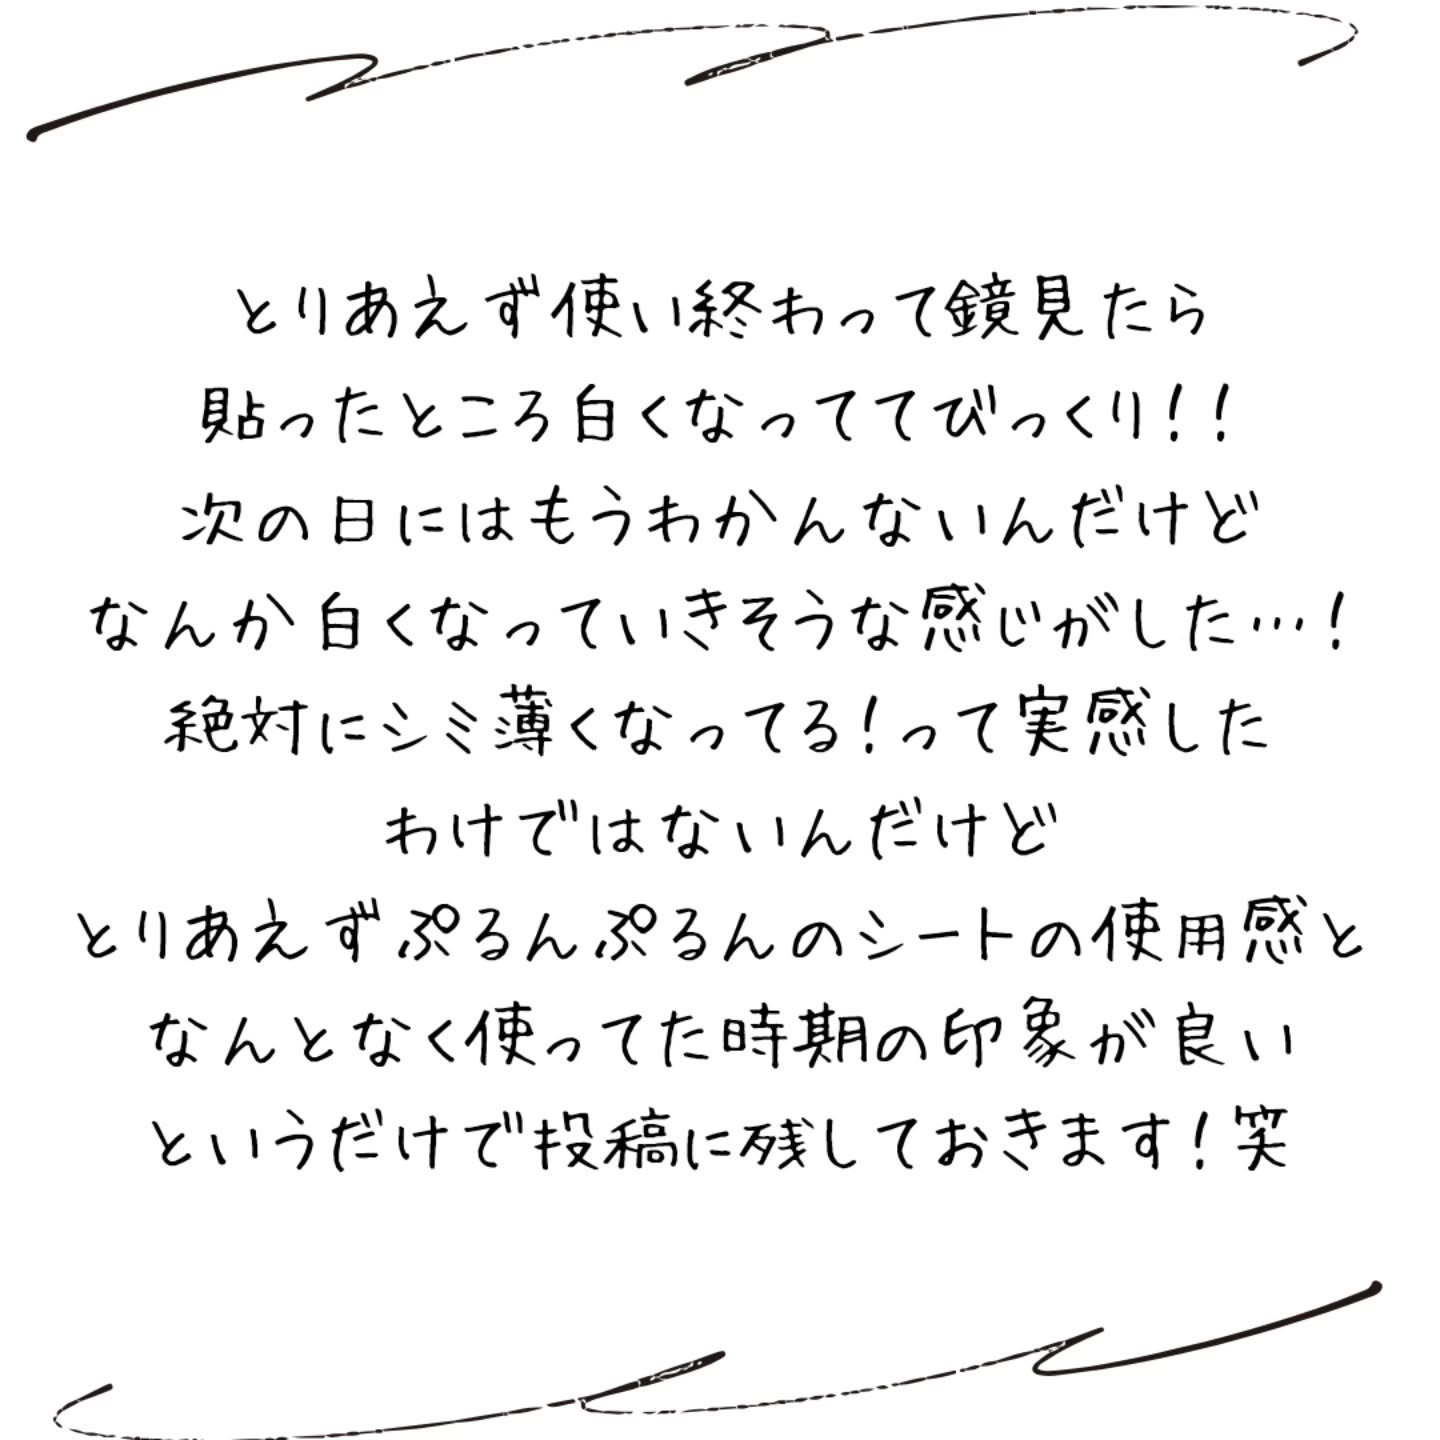 とりあえず使い終わって鏡見たら
貼ったところ白くなっててびっくり！！
次の日にはもうわかんないんだけど
なんか白くなっていきそうな感じがした…！
絶対にシミ薄くなってる！って実感した
わけではないんだけど
とりあえずぷるんぷるんのシートの使用感と
なんとなく使ってた時期の印象が良い
というだけで投稿に残しておきます！笑